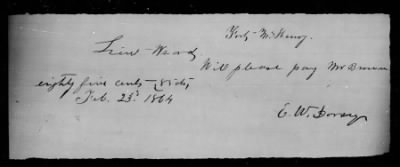 Fort McHenry.
Lieu Wood,
Will please pay Mr Brown
eighty five cents — 85 cts,
Feb. 23d 1864
E. W. Dorsey